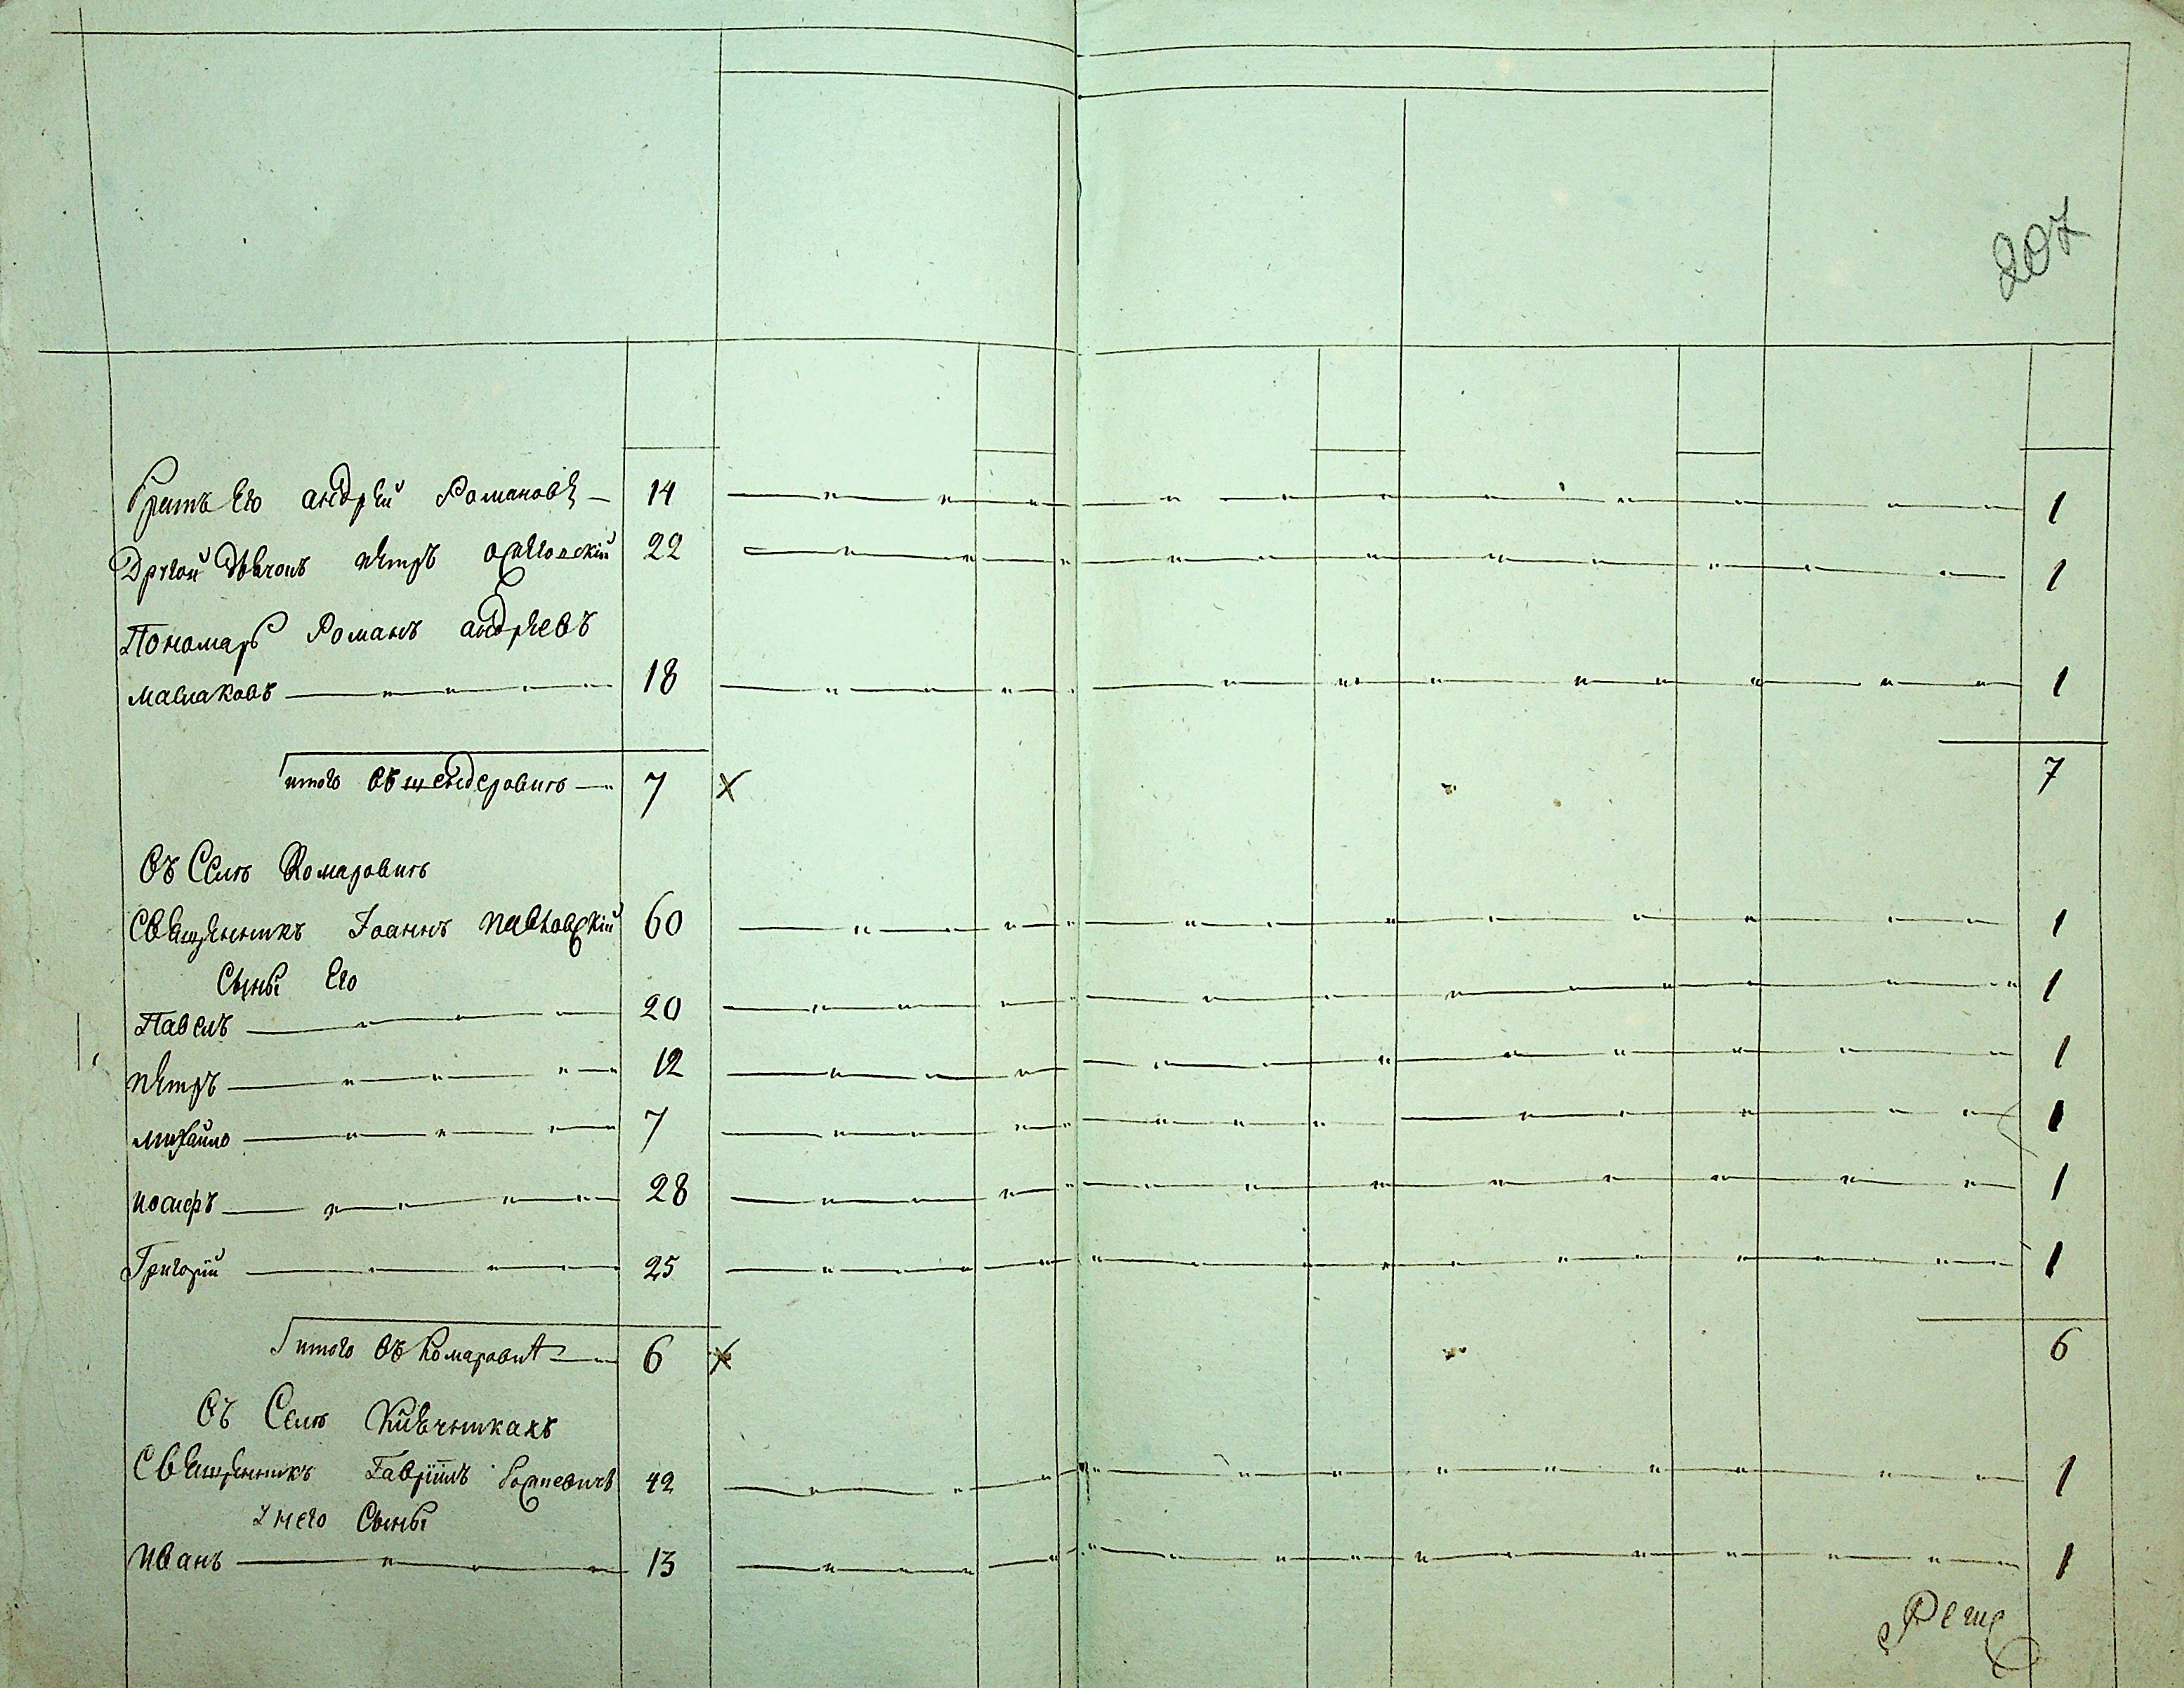 207
Братъ Его андрей Романовъ 14 1
Другой дьячокъ петръ 22 1
Пономарь Романъ андреевъ
маслаковъ 18 1
итого въ шендеровке 7 х 7
Въ Селе Комаровке
Священникъ Іоаннъ павловскій 60 1
Сыны Его
Павелъ 20 1
петръ 12 1
михайло 7 1
иосифъ 28 1
Григорій 25 1
итого въ Комаровке 6 х 6
Въ Селе
Священникъ Гавріилъ 42 1
у него Сыны
Иванъ 13 1